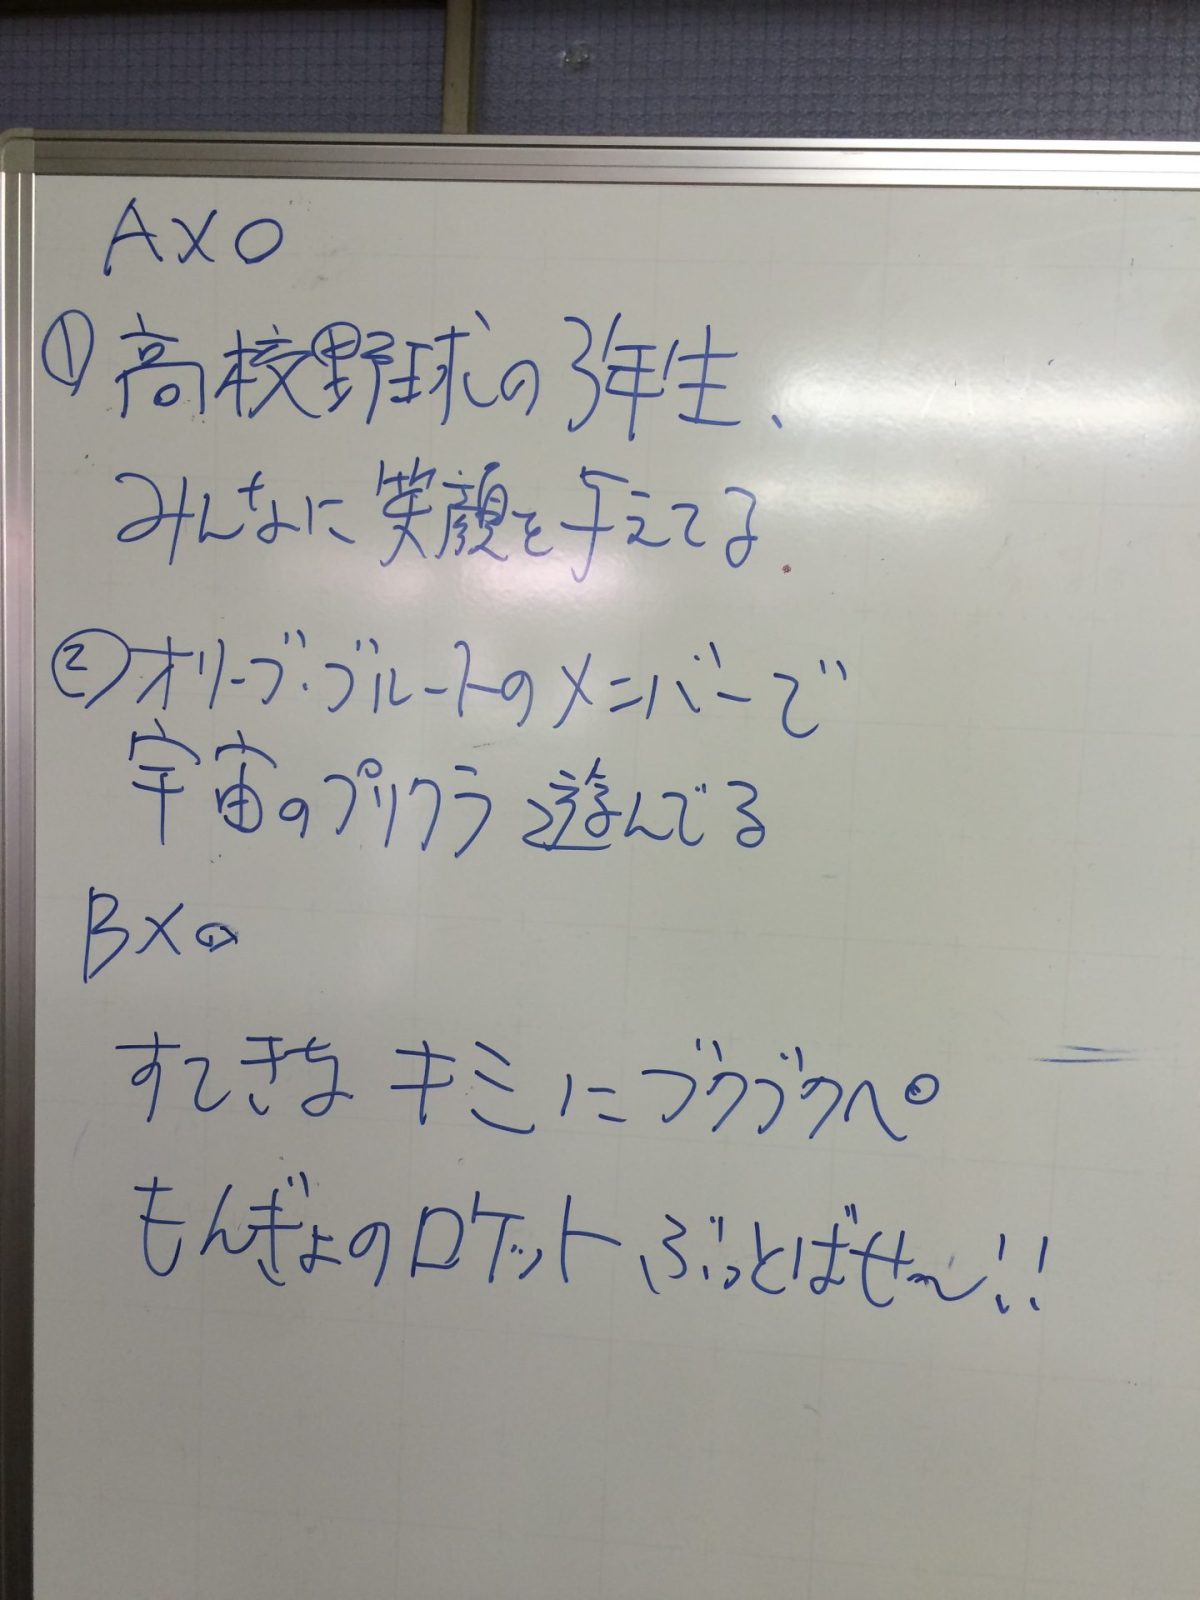 Aメロ
① 高校野球の3年生、
みんなに笑顔を与えてる
② オリーブ・ブルートのメンバーで
宇宙のプリクラ遊んでる
Bメロ
すてきなキミにブクブクペ。
もんぎょのロケットぶっとばせ〜!!